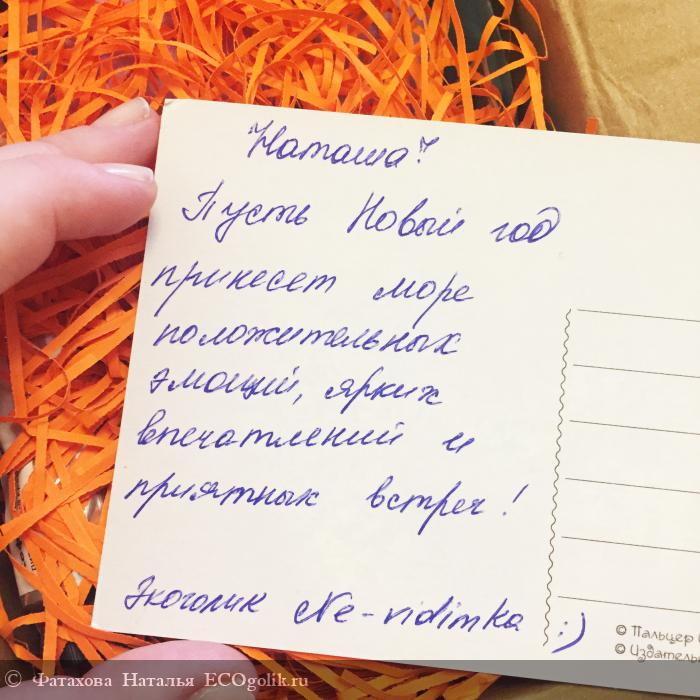 Наташа!
Пусть Новый год
принесет море
положительных
эмоций, ярких
впечатлений и
приятных встреч!
Экоголик Ne-vidimka :)
© Пальцер
© Издатель
© Фатахова Наталья ECOgolik.ru